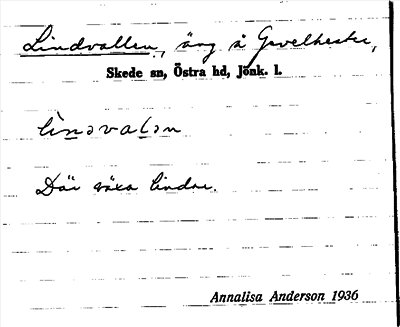 Lindvallen, äng å Gevelhester,
Skede sn, Östra hd, Jönk. l.
linəvalən
Där växa lindar.
Annalisa Anderson 1936